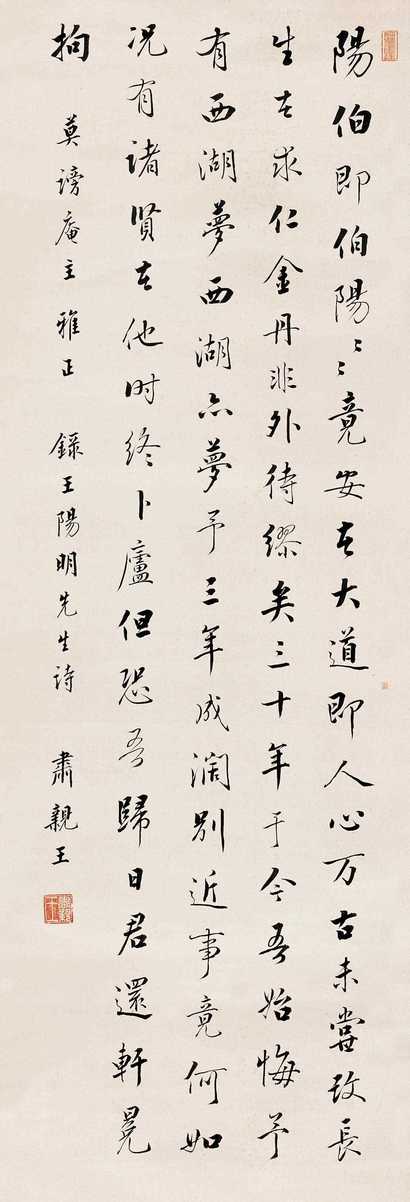 陽伯即伯陽〻〻竟安在大道即人心万古未嘗改長
生在求仁金丹非外待繆矣三十年于今吾始悔予
有西湖夢西湖亦夢予三年成濶別近事竟何如
况有诸贤在他时终卜廬但恐吾歸日君還軒冕
拘 莫谤庵主雅正 錄王陽明先生诗 肅親王